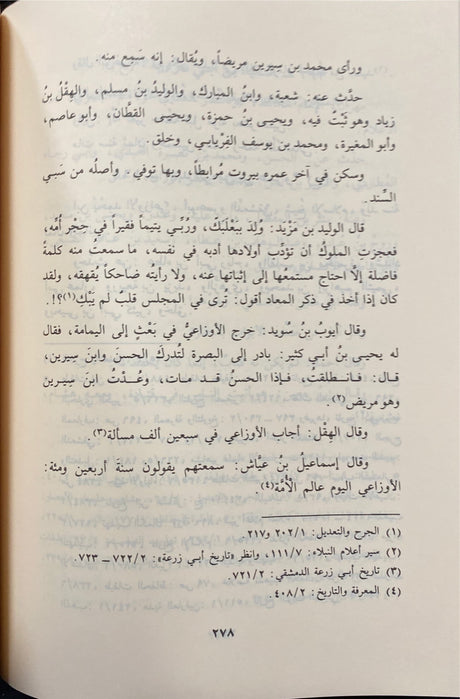 ورأى محمد بن سيرين مريضاً، ويُقال: إنه سَمِع منه.
حدَّث عنه: شعبة، وابنُ المبارك، والوليد بنُ مسلم، والهِقْل بنُ
زياد وهو ثَبْتُ فيه، ويحيى بنُ حمزة، ويحيى القَطَّان، وأبو عاصم،
وأبو المغيرة، ومحمد بن يوسف الفِريابي، وخلق.
وسكن في آخر عمره بيروت مُرابطاً، وبها توفي. وأصلُه من سَبي
السِّند.
قال الوليد بن مَزْيَد: وُلِدَ ببَعْلَبَكَّ، ورُبِّي يتيماً فقيراً في حِجْر أُمِّه،
فعجزتِ الملوكُ أن تؤدِّب أولادها أدبه في نفسه، ما سمعتُ منه كلمةً
فاضلة إلَّا احتاج مستمعُها إلى إثباتها عنه، ولا رأيته ضاحكاً يُقهقه، ولقد
كان إذا أخذ في ذكر المعاد أقول: تُرى في المجلس قلبٌ لم يَبْكِ(١)؟!.
وقال أيوبُ بنُ سُويد: خرج الأوزاعيُّ في بَعْثٍ إلى اليمامة، فقال
له يحيى بنُ أبي كثير: بادر إلى البصرة لتُدركَ الحسنَ وابنَ سِيرين،
قال: فانطلقتُ، فإذا الحسنُ قد مات، وعُدْتُ ابنَ سِيرين
وهو مريض(٢).
وقال الهِقْل: أجاب الأوزاعي في سبعين ألف مسألة(٣).
وقال إسماعيلُ بنُ عيَّاش: سمعتهم يقولون سنةَ أربعين ومئة:
الأوزاعي اليوم عالم الأُمَّة(٤).
(١) الجرح والتعديل: ٢٠٢/١ و٢١٧.
(٢) سير أعلام النبلاء: ١١١/٧، وانظر «تاريخ أبي زرعة» ٧٢٢/٢ – ٧٢٣.
(٣) تاريخ أبي زرعة الدمشقي: ٧٢١/٢.
(٤) المعرفة والتاريخ: ٤٠٨/٢.
٢٧٨